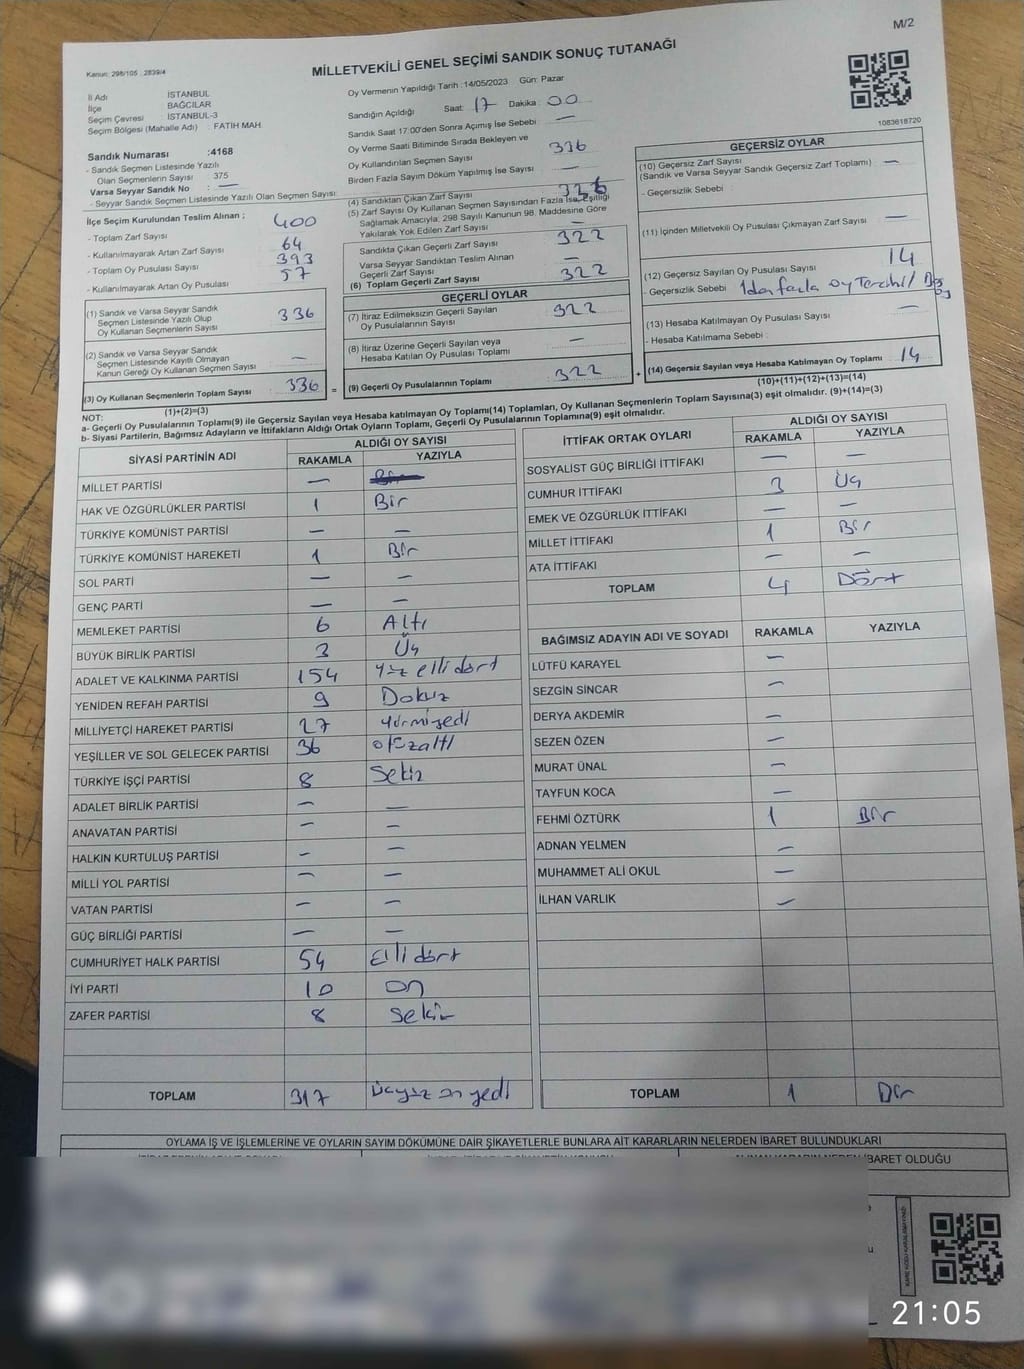 M/2
Kanun: 298/105 : 2839/4
MİLLETVEKİLİ GENEL SEÇİMİ SANDIK SONUÇ TUTANAĞI
İl Adı İSTANBUL
İlçe BAĞCILAR
Seçim Çevresi İSTANBUL-3
Seçim Bölgesi (Mahalle Adı) : FATİH MAH.
Oy Vermenin Yapıldığı Tarih :14/05/2023 Gün: Pazar
Sandığın Açıldığı Saat: 17 Dakika : 00
Sandık Saat 17:00'den Sonra Açımış İse Sebebi : —
Oy Verme Saati Bitiminde Sırada Bekleyen ve
Oy Kullandırılan Seçmen Sayısı 336
Birden Fazla Sayım Döküm Yapılmış İse Sayısı —
1083618720
Sandık Numarası :4168
- Sandık Seçmen Listesinde Yazılı
Olan Seçmenlerin Sayısı 375
Varsa Seyyar Sandık No : —
- Seyyar Sandık Seçmen Listesinde Yazılı Olan Seçmen Sayısı:
İlçe Seçim Kurulundan Teslim Alınan ;
- Toplam Zarf Sayısı 400
- Kullanılmayarak Artan Zarf Sayısı 64
- Toplam Oy Pusulası Sayısı 393
- Kullanılmayarak Artan Oy Pusulası 57
(1) Sandık ve Varsa Seyyar Sandık
Seçmen Listesinde Yazılı Olup
Oy Kullanan Seçmenlerin Sayısı 336
(2) Sandık ve Varsa Seyyar Sandık
Seçmen Listesinde Kayıtlı Olmayan
Kanun Gereği Oy Kullanan Seçmen Sayısı —
(3) Oy Kullanan Seçmenlerin Toplam Sayısı 336 =
(1)+(2)=(3)
(4) Sandıktan Çıkan Zarf Sayısı 336
(5) Zarf Sayısı Oy Kullanan Seçmen Sayısından Fazla İse, Eşitliği
Sağlamak Amacıyla, 298 Sayılı Kanunun 98. Maddesine Göre
Yakılarak Yok Edilen Zarf Sayısı —
Sandıkta Çıkan Geçerli Zarf Sayısı 322
Varsa Seyyar Sandıktan Teslim Alınan
Geçerli Zarf Sayısı —
(6) Toplam Geçerli Zarf Sayısı 322
GEÇERLİ OYLAR
(7) İtiraz Edilmeksizin Geçerli Sayılan
Oy Pusulalarının Sayısı 322
(8) İtiraz Üzerine Geçerli Sayılan veya
Hesaba Katılan Oy Pusulası Toplamı —
(9) Geçerli Oy Pusulalarının Toplamı 322 +
GEÇERSİZ OYLAR
(10) Geçersiz Zarf Sayısı
(Sandık ve Varsa Seyyar Sandık Geçersiz Zarf Toplamı) —
- Geçersizlik Sebebi :
(11) İçinden Milletvekili Oy Pusulası Çıkmayan Zarf Sayısı —
(12) Geçersiz Sayılan Oy Pusulası Sayısı 14
- Geçersizlik Sebebi 1den fazla oy Tercihi
(13) Hesaba Katılmayan Oy Pusulası Sayısı —
- Hesaba Katılmama Sebebi :
(14) Geçersiz Sayılan veya Hesaba Katılmayan Oy Toplamı 14
(10)+(11)+(12)+(13)=(14)
NOT:
a- Geçerli Oy Pusulalarının Toplamı(9) ile Geçersiz Sayılan veya Hesaba katılmayan Oy Toplamı(14) Toplamları, Oy Kullanan Seçmenlerin Toplam Sayısına(3) eşit olmalıdır. (9)+(14)=(3)
b- Siyasi Partilerin, Bağımsız Adayların ve İttifakların Aldığı Ortak Oyların Toplamı, Geçerli Oy Pusulalarının Toplamına(9) eşit olmalıdır.
SİYASİ PARTİNİN ADI ALDIĞI OY SAYISI
RAKAMLA YAZIYLA
MİLLET PARTİSİ —
HAK VE ÖZGÜRLÜKLER PARTİSİ 1 Bir
TÜRKİYE KOMÜNİST PARTİSİ — —
TÜRKİYE KOMÜNİST HAREKETİ 1 Bir
SOL PARTİ — —
GENÇ PARTİ — —
MEMLEKET PARTİSİ 6 Altı
BÜYÜK BİRLİK PARTİSİ 3 Üç
ADALET VE KALKINMA PARTİSİ 154 Yüz elli dört
YENİDEN REFAH PARTİSİ 9 Dokuz
MİLLİYETÇİ HAREKET PARTİSİ 27 Yirmiyedi
YEŞİLLER VE SOL GELECEK PARTİSİ 36 otuzaltı
TÜRKİYE İŞÇİ PARTİSİ 8 Sekiz
ADALET BİRLİK PARTİSİ — —
ANAVATAN PARTİSİ — —
HALKIN KURTULUŞ PARTİSİ — —
MİLLİ YOL PARTİSİ — —
VATAN PARTİSİ — —
GÜÇ BİRLİĞİ PARTİSİ — —
CUMHURİYET HALK PARTİSİ 54 Elli dört
İYİ PARTİ 10 On
ZAFER PARTİSİ 8 Sekiz
TOPLAM 317 Üçyüz on yedi
İTTİFAK ORTAK OYLARI ALDIĞI OY SAYISI
RAKAMLA YAZIYLA
SOSYALİST GÜÇ BİRLİĞİ İTTİFAKI — —
CUMHUR İTTİFAKI 3 Üç
EMEK VE ÖZGÜRLÜK İTTİFAKI — —
MİLLET İTTİFAKI 1 Bir
ATA İTTİFAKI — —
TOPLAM 4 Dört
BAĞIMSIZ ADAYIN ADI VE SOYADI RAKAMLA YAZIYLA
LÜTFÜ KARAYEL —
SEZGİN SİNCAR —
DERYA AKDEMİR —
SEZEN ÖZEN —
MURAT ÜNAL —
TAYFUN KOCA —
FEHMİ ÖZTÜRK 1 Bir
ADNAN YELMEN —
MUHAMMET ALİ OKUL —
İLHAN VARLIK —
TOPLAM 1 Bir
OYLAMA İŞ VE İŞLEMLERİNE VE OYLARIN SAYIM DÖKÜMÜNE DAİR ŞİKAYETLERLE BUNLARA AİT KARARLARIN NELERDEN İBARET BULUNDUKLARI
ALINAN KARARIN NEDEN İBARET OLDUĞU
21:05